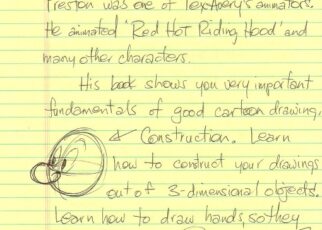 Preston was one of Tex Avery's animators.
He animated 'Red Hot Riding Hood' and
many other characters.
His book shows you very important
fundamentals of good cartoon drawing.
Construction. Learn
how to construct your drawings
out of 3-dimensional objects.
Learn how to draw hands, so they